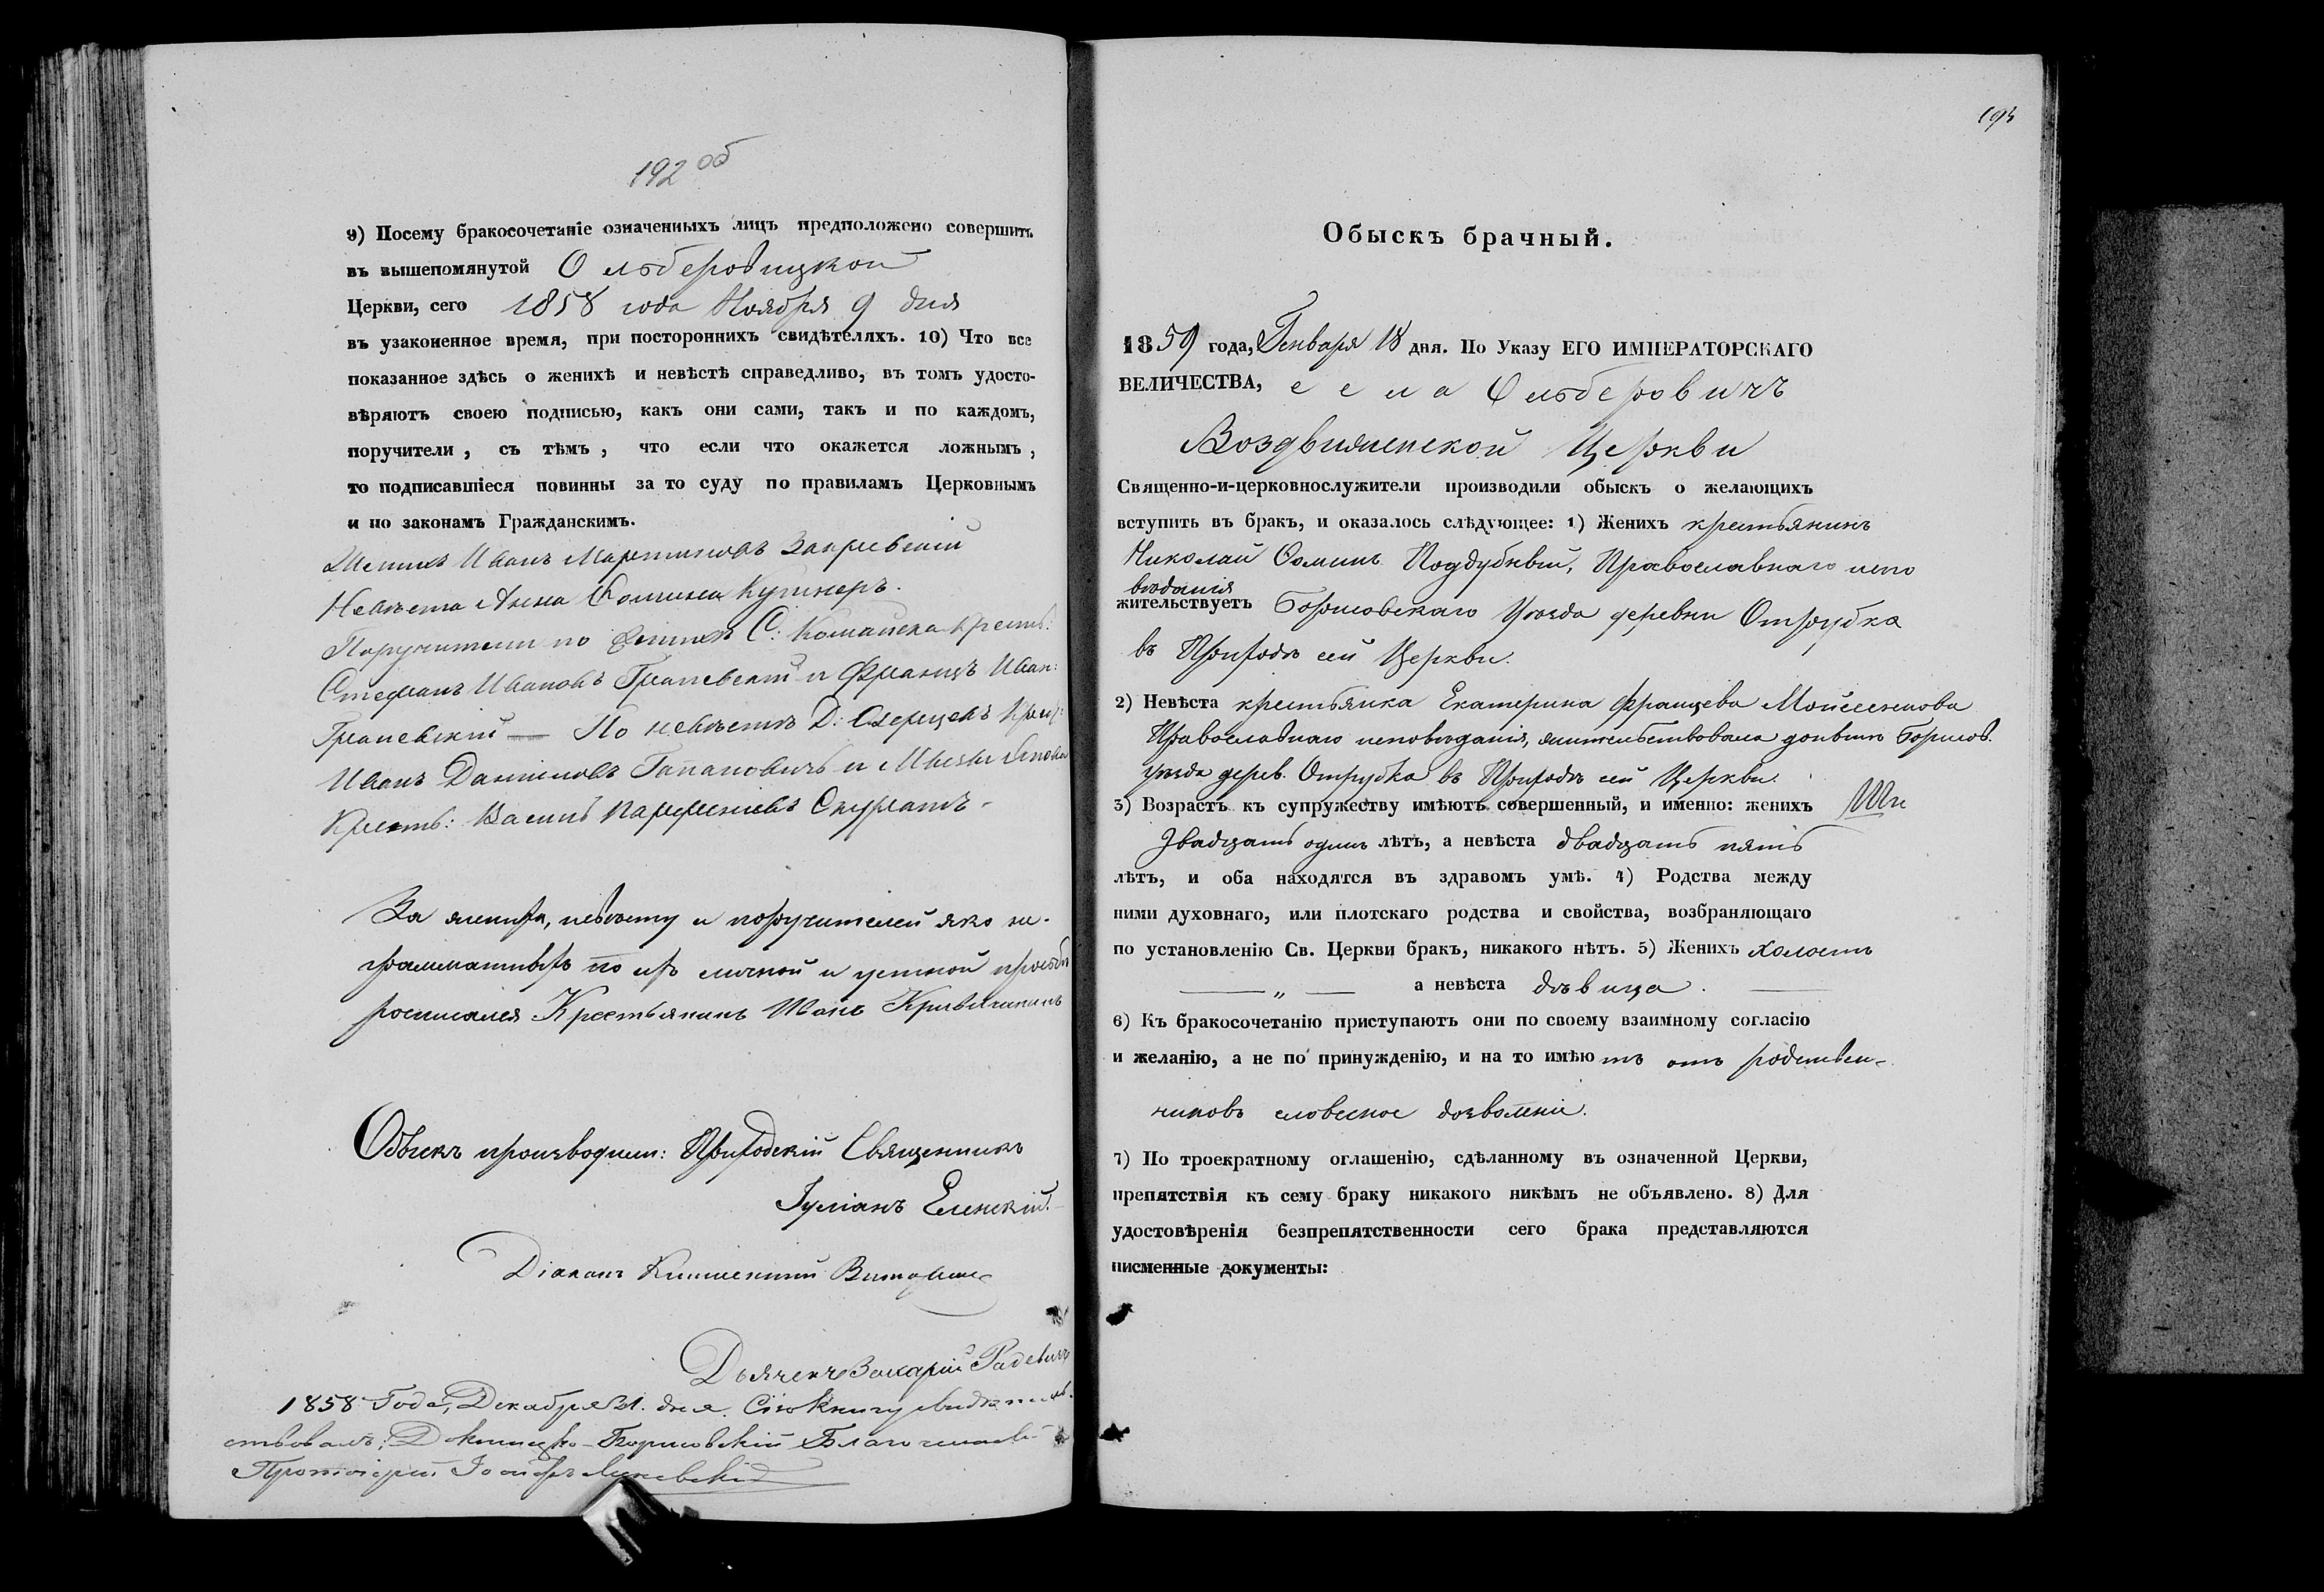 192 об
9) Посему бракосочетаніе означенныхъ лицъ предположено совершить
въ вышепомянутой Ольберовицкой
Церкви, сего 1858 года Ноября 9 дня
въ узаконенное время, при постороннихъ свидѣтеляхъ. 10) Что все
показанное здѣсь о женихѣ и невѣстѣ справедливо, въ томъ удосто-
вѣряютъ своею подписью, какъ они сами, такъ и по каждомъ,
поручители, съ тѣмъ, что если что окажется ложнымъ,
то подписавшіеся повинны за то суду по правиламъ Церковнымъ
и по законамъ Гражданскимъ.
Женихъ Иванъ Мартиновъ Закревскій
Невѣста Анна Фомина Кушнеръ.
Поручители по женихѣ С: Крест:
Стефанъ Ивановъ и Францъ Иван:
— По невѣстѣ Д:
Иванъ Даниловъ Гапановичъ и
Крест: Василь Парфеновъ Скуратъ
За жениха, невѣсту и поручителей яко не-
грамматныхъ по ихъ личной и устной прозьбѣ
росписался Крестьянинъ Иванъ
Обыскъ производили: Приходскій Священникъ
Іуліанъ Еленскій.
Діаконъ
Дьячекъ Захарій Радевичъ
1858 Года, Декабря 21. дня. Сію Книгу свидѣтель-
ствовалъ: Докшицко-Борисовскій Благочинный
Протоіерей Іосифъ
193
Обыскъ брачный.
1859 года, Генваря 18 дня. По Указу ЕГО ИМПЕРАТОРСКАГО
ВЕЛИЧЕСТВА, села Ольберовичъ
Воздвиженской Церкви
Священно-и-церковнослужители производили обыскъ о желающихъ
вступить въ бракъ, и оказалось слѣдующее: 1) Женихъ крестьянинъ
Николай Фоминъ Поддубный, Православнаго испо
вѣданія
жительствуетъ Борисовскаго Уѣзда деревни Отрубка
въ Приходѣ сей Церкви.
2) Невѣста крестьянка Екатерина Францева Мойсеенкова
Православнаго исповѣданія, жительствовала донынѣ Борисов.
уѣзда дерев. Отрубка въ Приходѣ сей Церкви.
3) Возрастъ къ супружеству имѣютъ совершенный, и именно: женихъ
двадцать одинъ лѣтъ, а невѣста двадцать пять
лѣтъ, и оба находятся въ здравомъ умѣ. 4) Родства между
ними духовнаго, или плотскаго родства и свойства, возбраняющаго
по установленію Св. Церкви бракъ, никакого нѣтъ. 5) Женихъ холостъ
— „ — а невѣста дѣвица.
6) Къ бракосочетанію приступаютъ они по своему взаимному согласію
и желанію, а не по принужденію, и на то имѣютъ отъ родствен-
никовъ словесное дозволеніе.
7) По троекратному оглашенію, сдѣланному въ означенной Церкви,
препятствія къ сему браку никакого никѣмъ не объявлено. 8) Для
удостовѣренія безпрепятственности сего брака представляются
писменные документы: